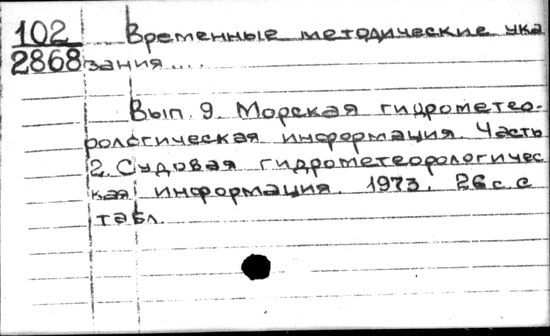 102 Временные методические ука
2868 зания....
Вып. 9. Морская гидрометео-
рологическая информация. Часть
2. Судовая гидрометеорологичес
кая информация. 1973. 26 с. с
табл.